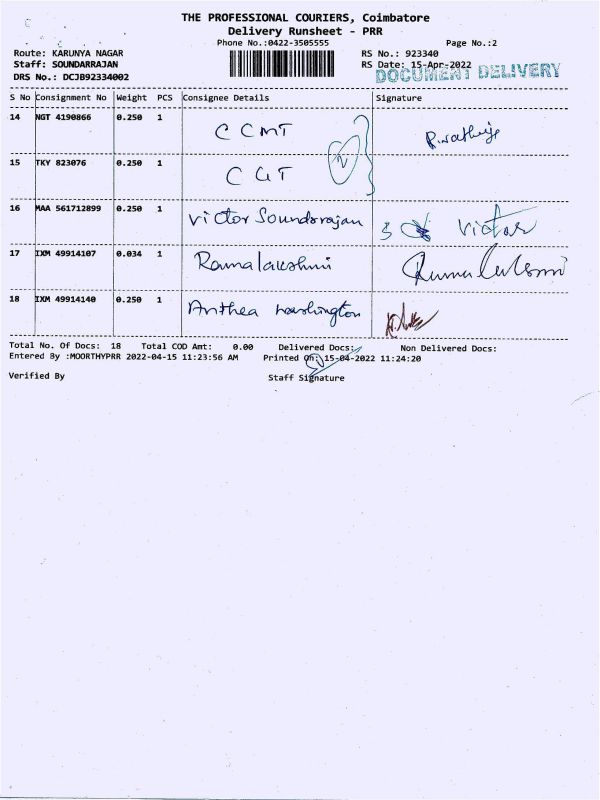 THE PROFESSIONAL COURIERS, Coimbatore
Delivery Runsheet - PRR
Phone No.:0422-3505555
Page No.:2
Route: KARUNYA NAGAR
RS No.: 923340
Staff: SOUNDARRAJAN
RS Date: 15-Apr-2022
DRS No.: DCJB92334002
DOCUMENT DELIVERY
S No Consignment No Weight PCS Consignee Details Signature
14 NGT 4190866 0.250 1 CCMT
15 TKY 823076 0.250 1 CGT
16 MAA 561712899 0.250 1 Victor Soundsrajan Victor
17 IXM 49914107 0.034 1 Ramalakshmi
18 IXM 49914140 0.250 1 Anthea
Total No. Of Docs: 18 Total COD Amt: 0.00 Delivered Docs: Non Delivered Docs:
Entered By :MOORTHYPRR 2022-04-15 11:23:56 AM Printed On: 15-04-2022 11:24:20
Verified By Staff Signature